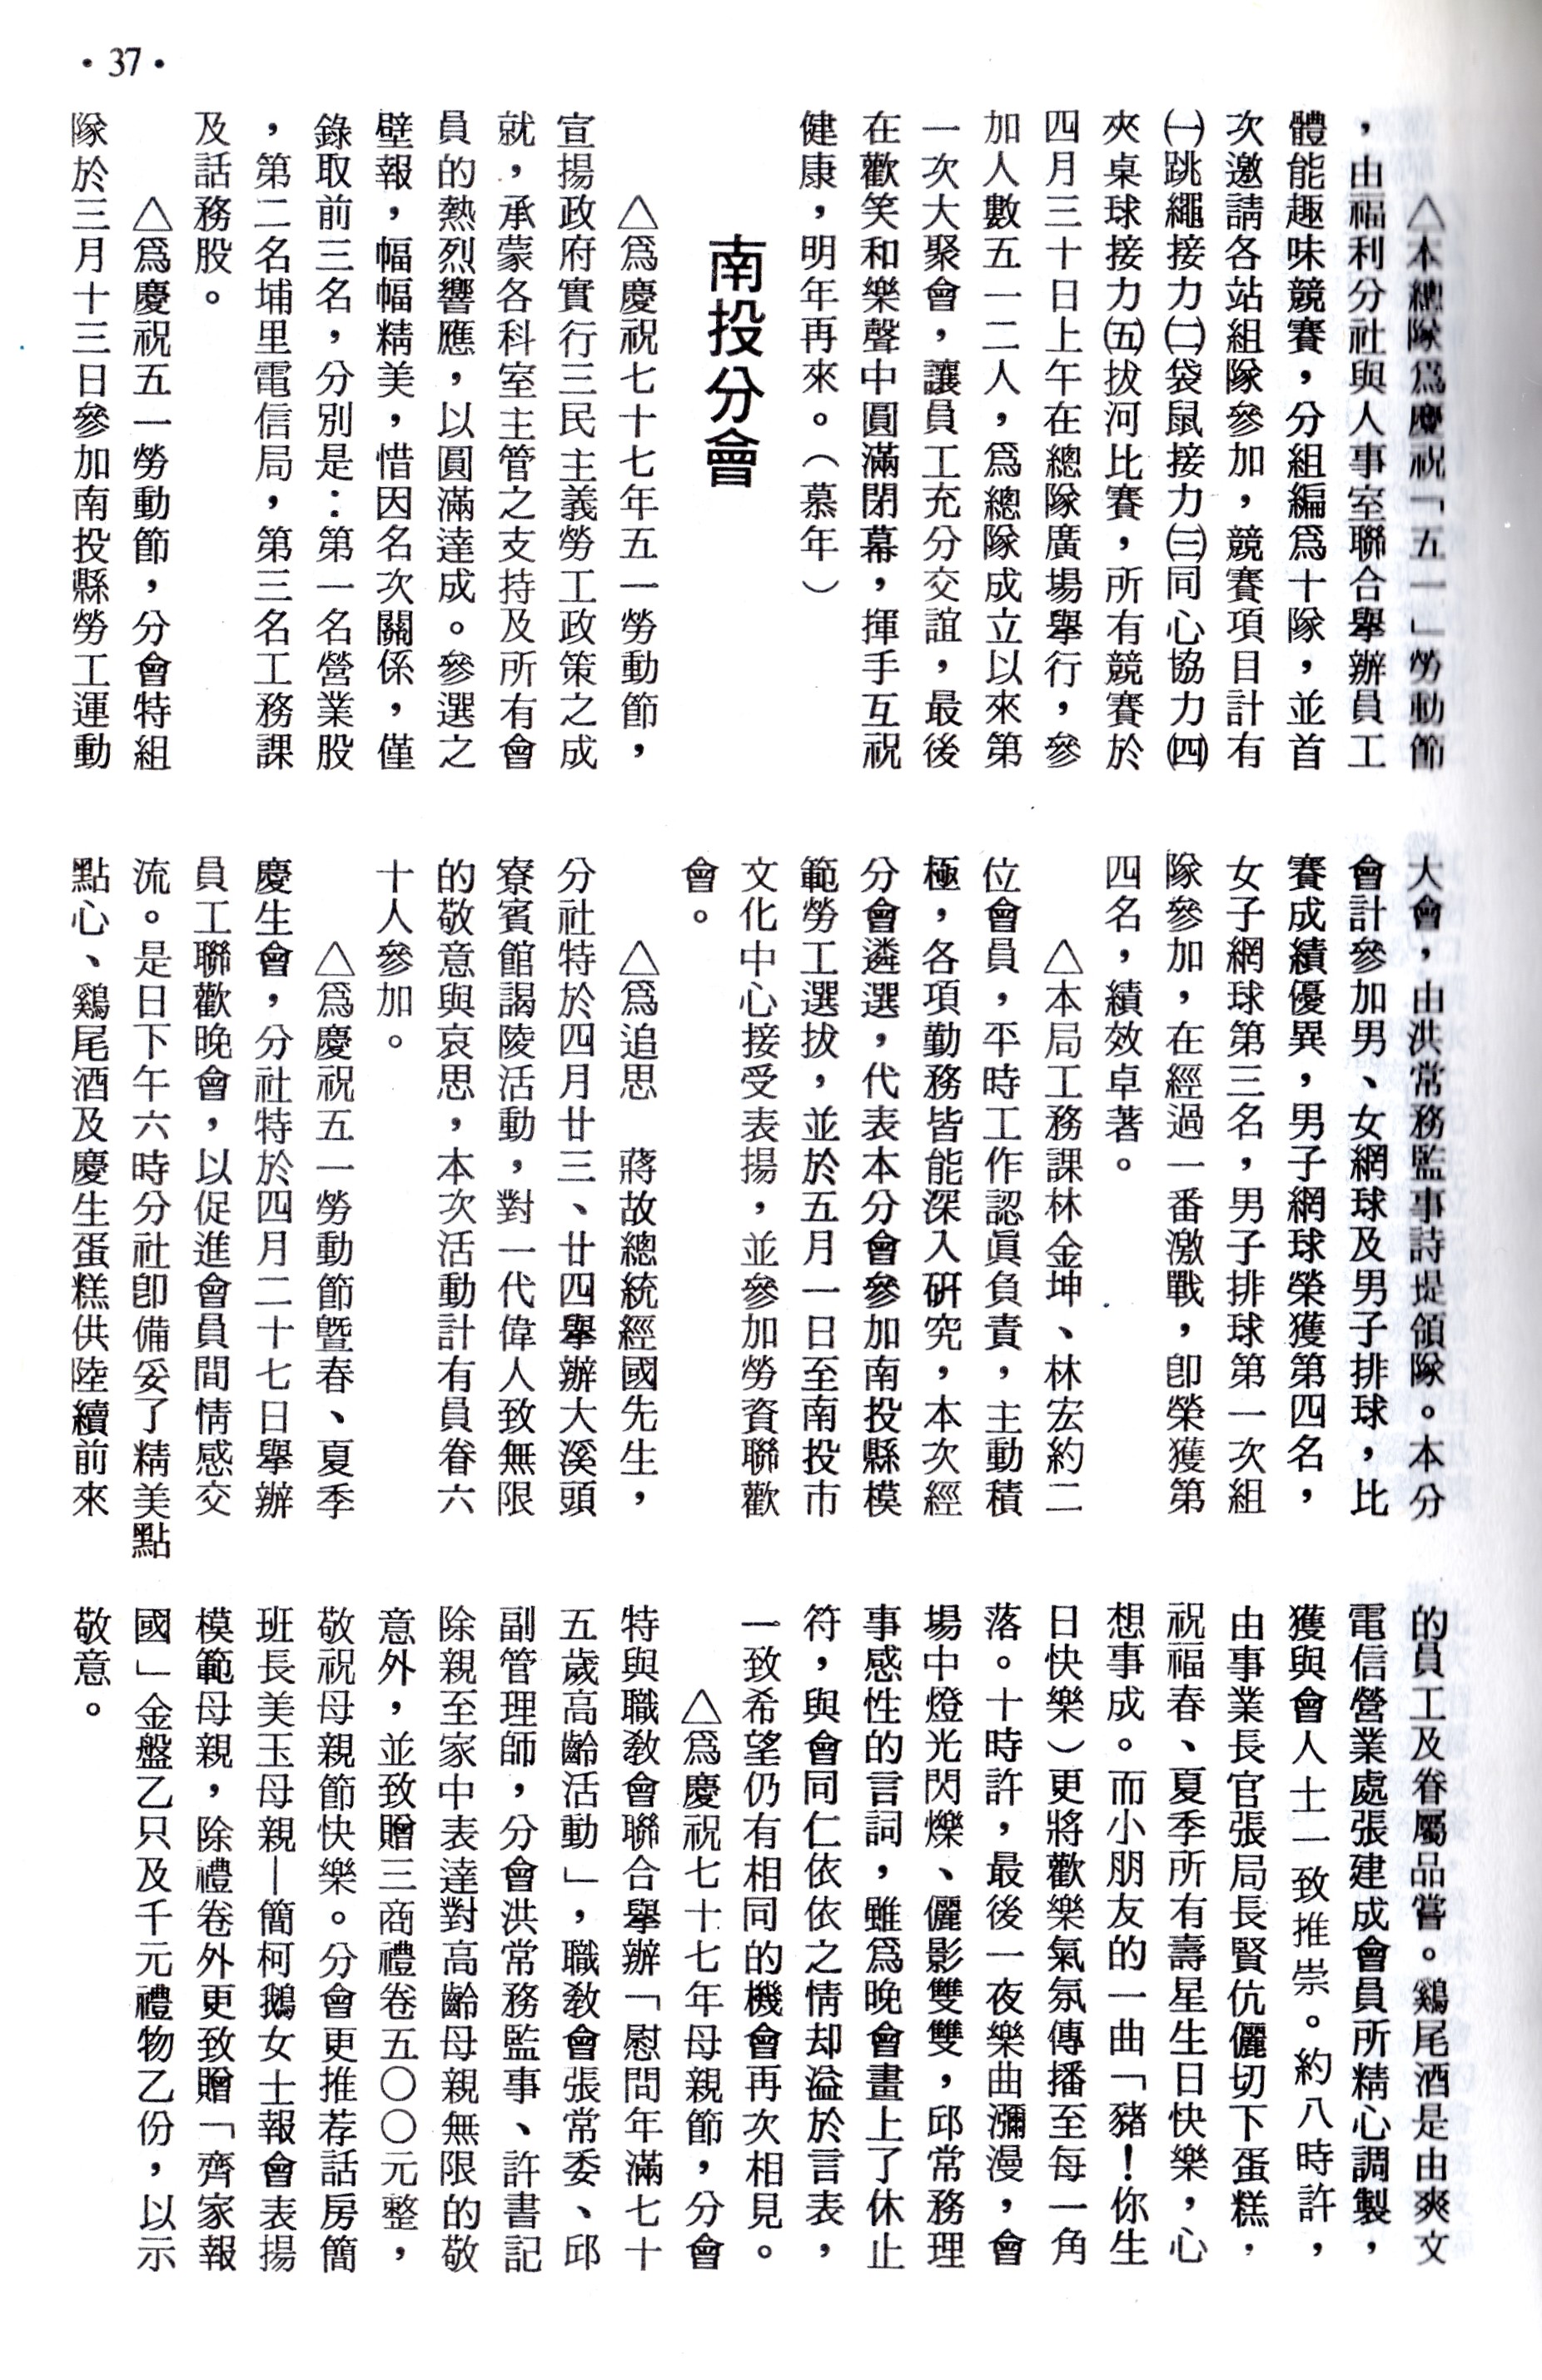 •37•
△本總隊爲慶祝「五一」勞動節
，由福利分社與人事室聯合舉辦員工
體能趣味競賽，分組編爲十隊，並首
次邀請各站組隊參加，競賽項目計有
㈠跳繩接力㈡袋鼠接力㈢同心協力㈣
夾桌球接力㈤拔河比賽，所有競賽於
四月三十日上午在總隊廣場舉行，參
加人數五一二人，爲總隊成立以來第
一次大聚會，讓員工充分交誼，最後
在歡笑和樂聲中圓滿閉幕，揮手互祝
健康，明年再來。（慕年）
南投分會
△爲慶祝七十七年五一勞動節，
宣揚政府實行三民主義勞工政策之成
就，承蒙各科室主管之支持及所有會
員的熱烈響應，以圓滿達成。參選之
壁報，幅幅精美，惜因名次關係，僅
錄取前三名，分別是：第一名營業股
，第二名埔里電信局，第三名工務課
及話務股。
△爲慶祝五一勞動節，分會特組
隊於三月十三日參加南投縣勞工運動
大會，由洪常務監事詩堤領隊。本分
會計參加男、女網球及男子排球，比
賽成績優異，男子網球榮獲第四名，
女子網球第三名，男子排球第一次組
隊參加，在經過一番激戰，卽榮獲第
四名，績效卓著。
△本局工務課林金坤、林宏約二
位會員，平時工作認眞負責，主動積
極，各項勤務皆能深入研究，本次經
分會遴選，代表本分會參加南投縣模
範勞工選拔，並於五月一日至南投市
文化中心接受表揚，並參加勞資聯歡
會。
△爲追思　蔣故總統經國先生，
分社特於四月廿三、廿四舉辦大溪頭
寮賓館謁陵活動，對一代偉人致無限
的敬意與哀思，本次活動計有員眷六
十人參加。
△爲慶祝五一勞動節暨春、夏季
慶生會，分社特於四月二十七日舉辦
員工聯歡晚會，以促進會員間情感交
流。是日下午六時分社卽備妥了精美點
點心、鷄尾酒及慶生蛋糕供陸續前來
的員工及眷屬品嘗。鷄尾酒是由爽文
電信營業處張建成會員所精心調製，
獲與會人士一致推崇。約八時許，
由事業長官張局長賢伉儷切下蛋糕，
祝福春、夏季所有壽星生日快樂，心
想事成。而小朋友的一曲「豬！你生
日快樂）更將歡樂氣氛傳播至每一角
落。十時許，最後一夜樂曲瀰漫，會
場中燈光閃爍、儷影雙雙，邱常務理
事感性的言詞，雖爲晚會畫上了休止
符，與會同仁依依之情却溢於言表，
一致希望仍有相同的機會再次相見。
△爲慶祝七十七年母親節，分會
特與職敎會聯合舉辦「慰問年滿七十
五歲高齡活動」，職敎會張常委、邱
副管理師，分會洪常務監事、許書記
除親至家中表達對高齡母親無限的敬
意外，並致贈三商禮卷五〇〇元整，
敬祝母親節快樂。分會更推荐話房簡
班長美玉母親—簡柯鵝女士報會表揚
模範母親，除禮卷外更致贈「齊家報
國」金盤乙只及千元禮物乙份，以示
敬意。